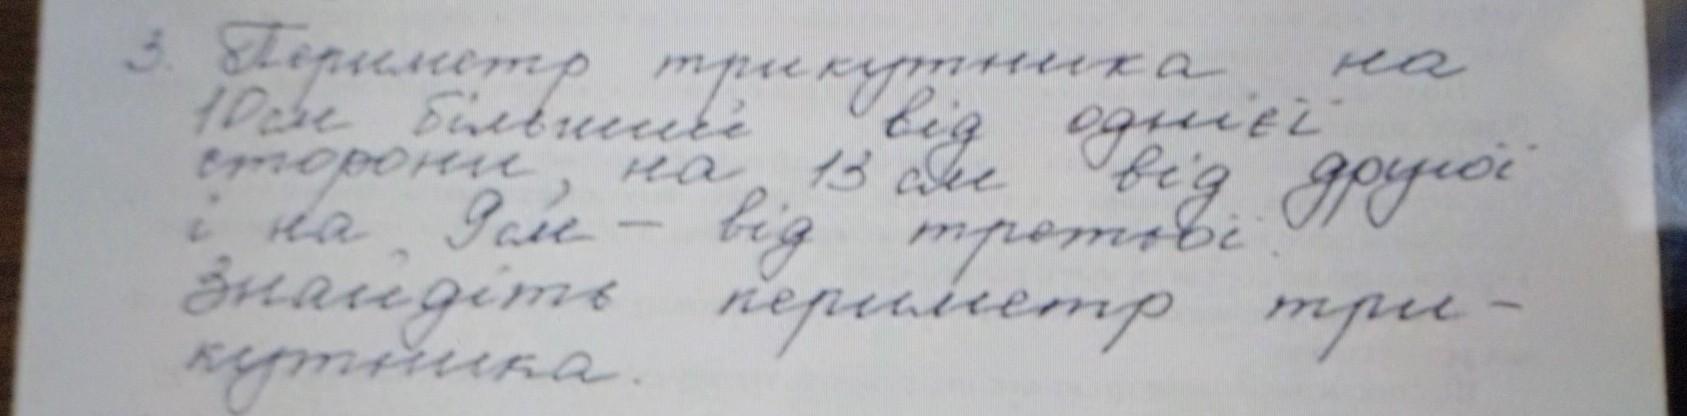 3. Периметр трикутника на
10 см більший від однієї
сторони, на 13 см від другої
і на 9 см – від третьої.
Знайдіть периметр три-
кутника.